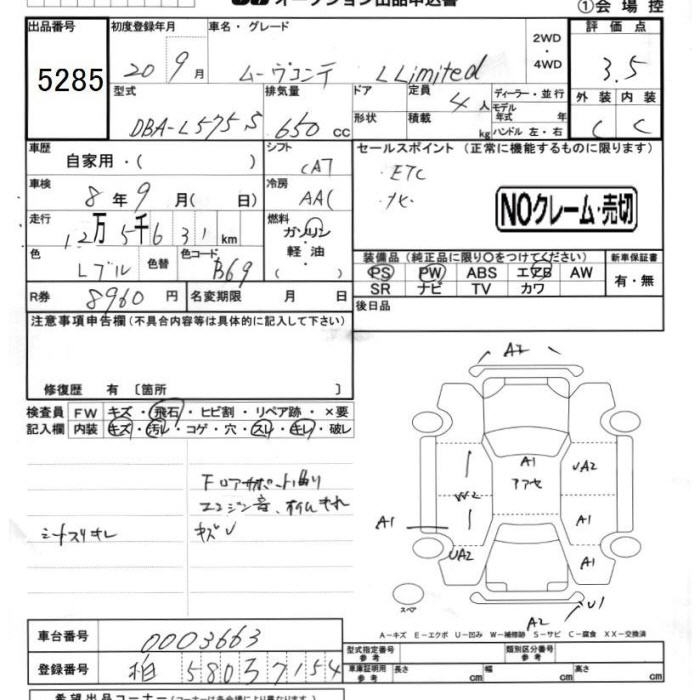 オークション出品申込書
①会場控
出品番号 5285
初度登録年月 20 9月
車名・グレード ムーヴコンテ L Limited
2WD・4WD
評価点 3.5
型式 DBA-L575S
排気量 650 cc
ドア 形状
定員 4人
積載 kg
ディーラー・並行
モデル年式 年
ハンドル 左・右
外装 C 内装 C
車歴 自家用・( )
シフト CAT
セールスポイント(正常に機能するものに限ります)
・ETC
・ナビ
NOクレーム・売切
車検 8年9月( 日)
冷房 AAC
走行 12万5千631km
燃料 ガソリン 軽油 ( )
色 Lブル 色替 色コード B69
装備品(純正品に限り○をつけてください)
PS PW ABS エアB AW
SR ナビ TV カワ
新車保証書 有・無
R券 8960円 名変期限 月 日
後日品
注意事項申告欄(不具合内容等は具体的に記入して下さい)
修復歴 有〔箇所 〕
検査員 FW キズ・飛石・ヒビ割・リペア跡・×要
記入欄 内装 キズ・汚レ・コゲ・穴・スレ・キレ・破レ
シートスリキレ
Fロアサポート曲り
エンジン音、
キズU
A2
A1
アアセ
UA2
W2
A1
A1
UA2
A1
スペア
A2
U1
A-キズ E-エクボ U-凹み W-補修跡 S-サビ C-腐食 XX-交換済
車台番号 0003663
登録番号 柏 580 ヌ 7154
型式指定番号 参考
類別区分番号 参考
車庫証明用 参考 長さ cm 幅 cm 高さ cm
希望出品コーナー